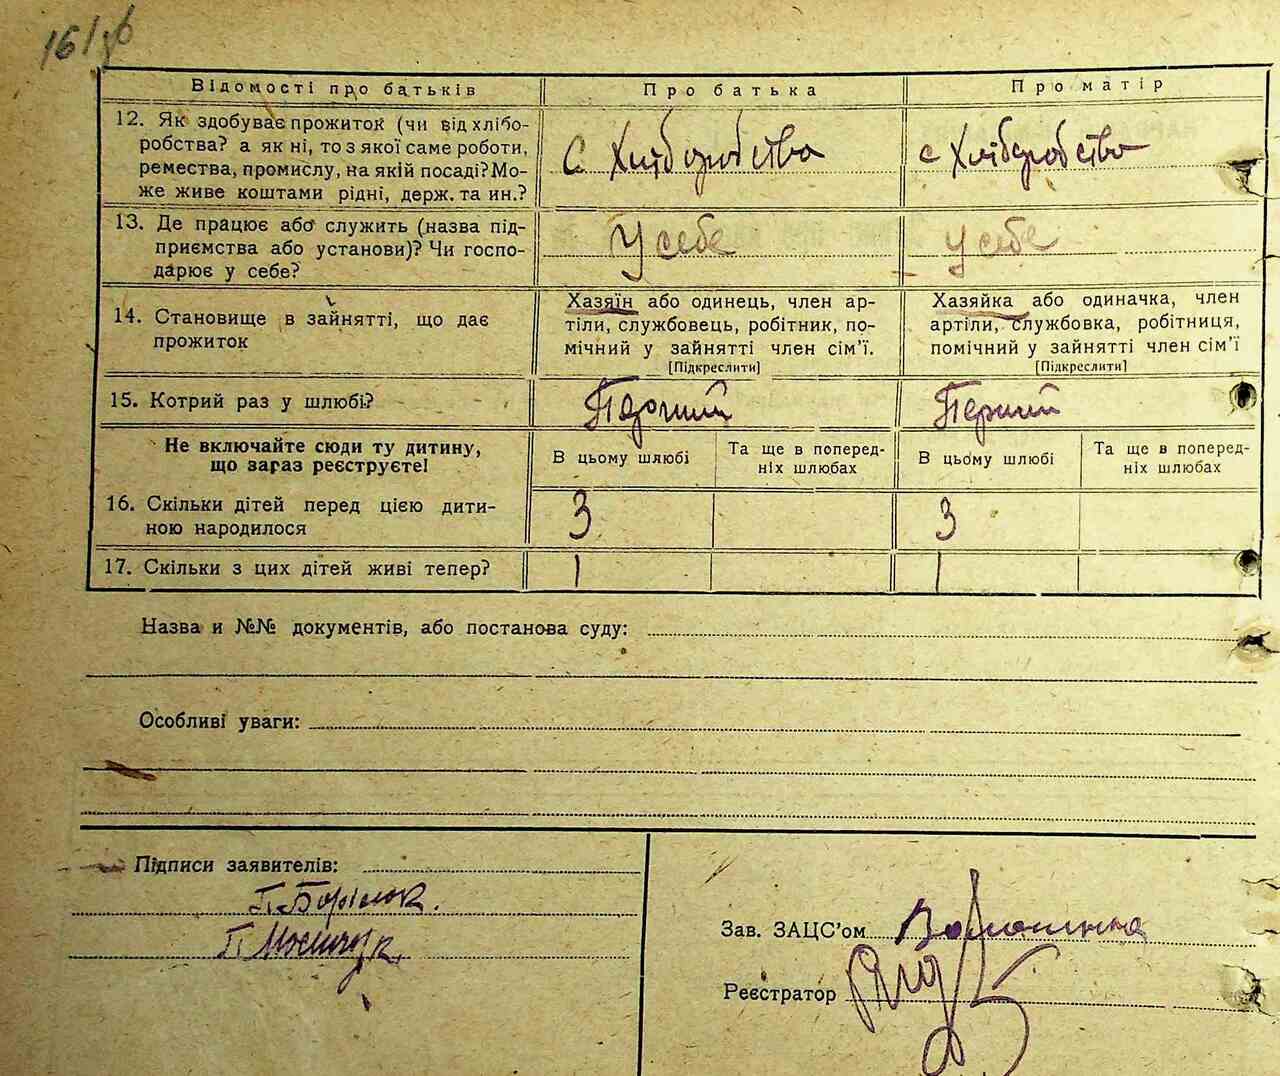 16/зв
Відомості про батьків Про батька Про матір
12. Як здобуває прожиток (чи від хлібо-
робства? а як ні, то з якої саме роботи,
ремества, промислу, на якій посаді? Мо-
же живе коштами рідні, держ. та ин.?
с Хліборобства с Хліборобства
13. Де працює або служить (назва під-
приємства або установи)? Чи госпо-
дарює у себе?
У себе у себе
14. Становище в зайнятті, що дає
прожиток
Хазяїн або одинець, член ар-
тіли, службовець, робітник, по-
мічний у зайнятті член сім’ї.
[Підкреслити]
Хазяйка або одиначка, член
артіли, службовка, робітниця,
помічний у зайнятті член сім’ї
[Підкреслити]
15. Котрий раз у шлюбі? Перший Перший
Не включайте сюди ту дитину,
що зараз реєструєте!
В цьому шлюбі
Та ще в поперед-
ніх шлюбах
В цьому шлюбі
Та ще в поперед-
ніх шлюбах
16. Скільки дітей перед цією дити-
ною народилося
3 3
17. Скільки з цих дітей живі тепер? 1 1
Назва и №№ документів, або постанова суду:
Особливі уваги:
Підписи заявителів:
П.
П.
Зав. ЗАЦС’ом
Реєстратор